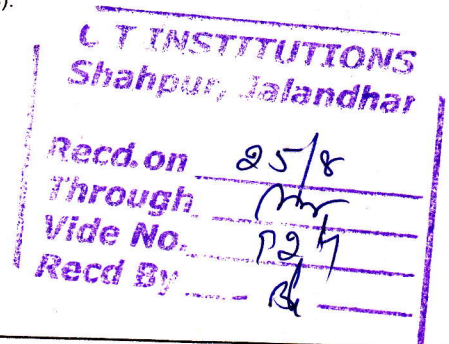 ).
C T INSTITUTIONS
Shahpur, Jalandhar
Recd.on 25/8
Through
Vide No.
Recd By